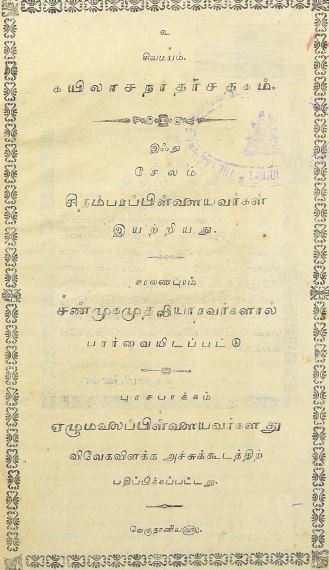 உ
சிவமயம்.
கயிலாசநாதர்சதகம்.
இஃது
சேலம்
சிதம்பரப்பிள்ளையவர்கள்
இயற்றியது.
சரவணபுரம்
சண்முகமுதலியாரவர்களால்
பார்வையிடப்பட்டு
புரசபாக்கம்
ஏழுமலைப்பிள்ளையவர்களது
விவேகவிளக்க அச்சுக்கூடத்திற்
பதிப்பிக்கப்பட்டது.
வெகுதானிய௵